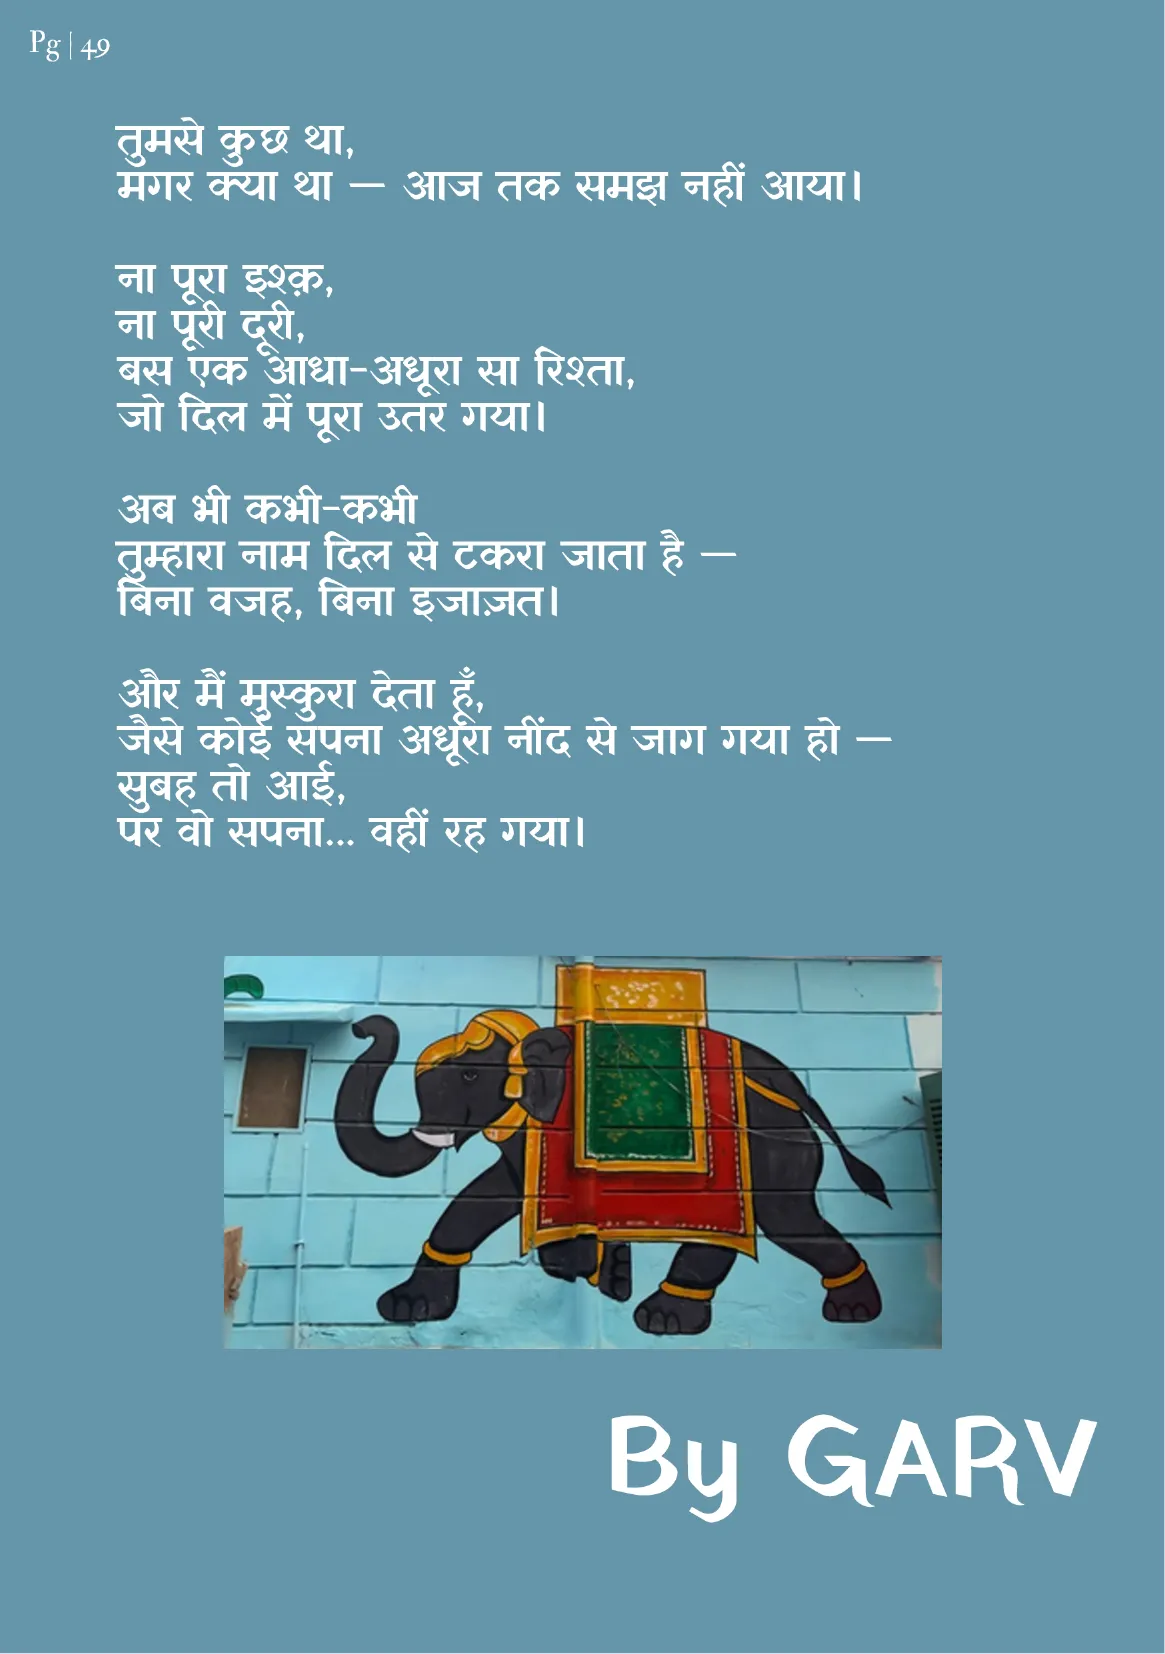 Pg | 49
तुमसे कुछ था,
मगर क्या था — आज तक समझ नहीं आया।
ना पूरा इश्क़,
ना पूरी दूरी,
बस एक आधा-अधूरा सा रिश्ता,
जो दिल में पूरा उतर गया।
अब भी कभी-कभी
तुम्हारा नाम दिल से टकरा जाता है —
बिना वजह, बिना इजाज़त।
और मैं मुस्कुरा देता हूँ,
जैसे कोई सपना अधूरा नींद से जाग गया हो —
सुबह तो आई,
पर वो सपना... वहीं रह गया।
By GARV